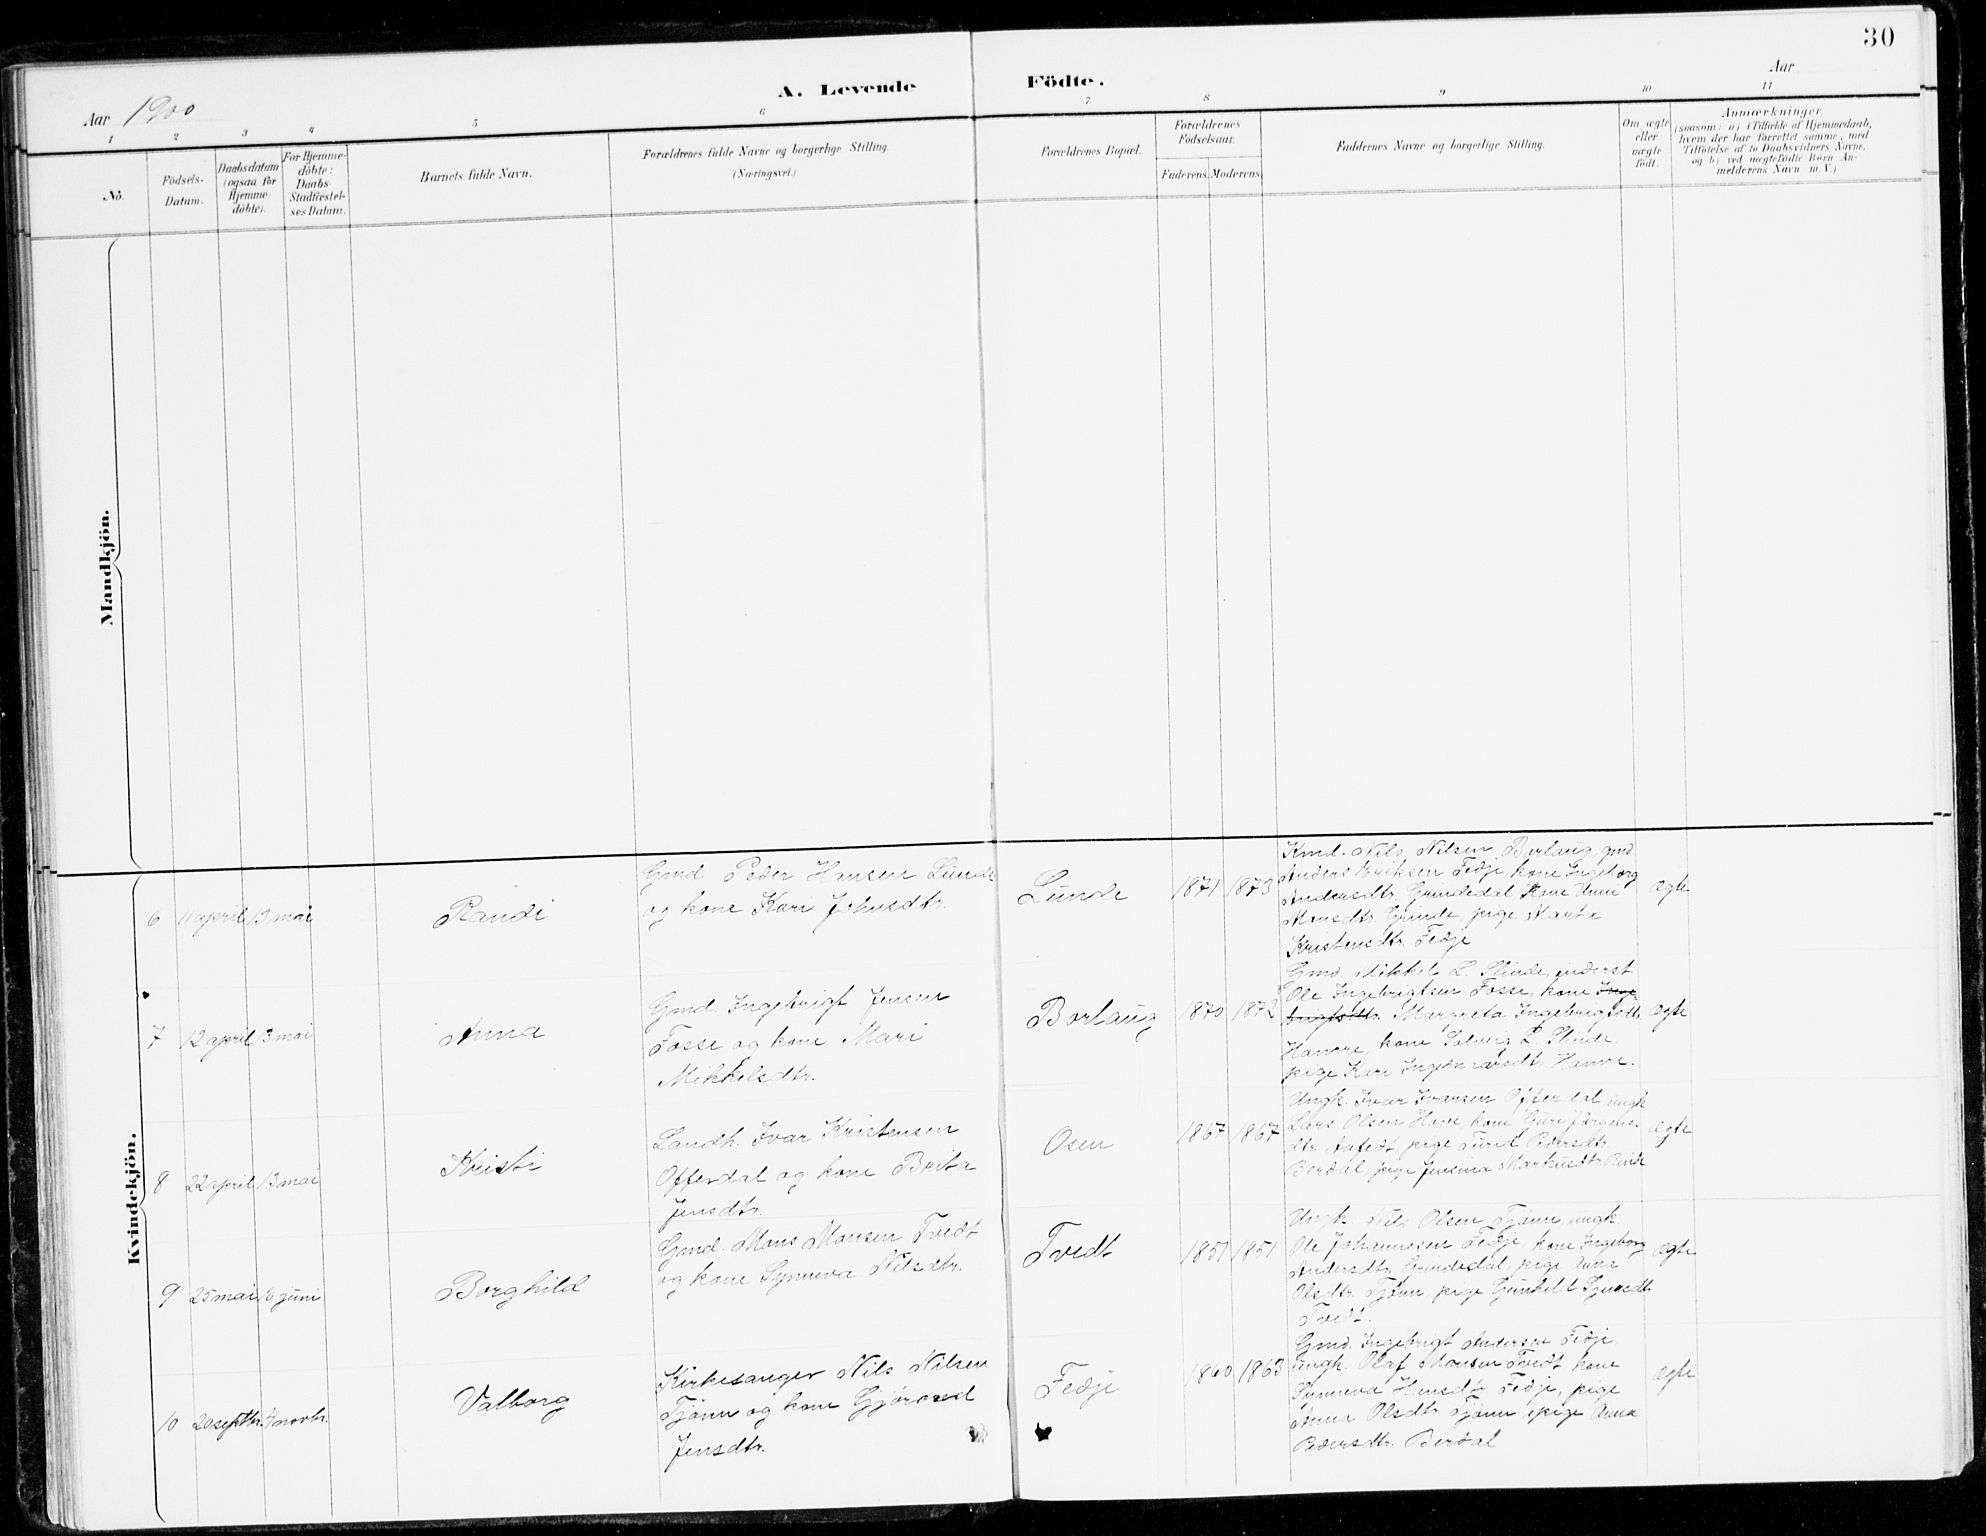 30
Aar 1900
A. Levende Födte.
Aar
1 2 3 4 5 6 7 8 9 10 11
No.
Födsels-
Datum.
Daabsdatum
(ogsaa for
Hjemme-
döbte).
For Hjemme-
döbte:
Daabs-
Stadfæstel-
ses Datum.
Barnets fulde Navn.
Forældrenes fulde Navne og borgerlige Stilling
(Næringsvei.)
Forældrenes Bopæl.
Forældrenes
Födselsaar.
Faderens. Moderens.
Faddernes Navne og borgerlige Stilling.
Om ægte
eller
uægte
födt.
Anmærkninger
(saasom: a) i Tilfælde af Hjemmedaab,
hvem der har forrettet samme, med
Tilföielse af to Daabsvidners Navne,
og b) ved uægtefödte Börn An-
melderens Navn m. V.)
Mandkjön.
Kvindekjön.
6 11 april 13 mai Randi
Gmd Peder Hansen Lunde
og kone Kari Johnsdtr.
Lunde 1871 1873
Kmd. Nils Nilsen Borlaug, gmd
Anders Eriksen Fedje kone Ingeborg
Andersdtr. Grindedal kone Unni
Monsdtr. Grinde, pige Marta
Kristensdtr. Fedje
ægte
7 12 april 13 mai Anna
Gmd. Ingebrigt Jensen
Fosse og kone Mari
Mikkelsdtr.
Borlaug 1870 1872
Gmd. Mikkel L. Slinde, inderst
Ole Ingebrigtsen Fosse, kone Inge-
brigtsdtr. Margreta Ingebrigtsdtr.
Hamre, kone Solveig L. Slinde,
pige Kari Hamre.
ægte
8 22 april 13 mai Kristi
Landh. Ivar Kristensen
Offerdal og kone Brita
Jensdtr.
Osen 1867 1867
Ungk. Ivar Ivarsen Offerdal ungk
Lars Olsen Hove, kone Guri Jørgens-
dtr. Aafedt, pige Turid Pedersdtr
Berdal, pige Jensina Markusdtr. Rinde
ægte
9 25 mai 10 juni Borghild
Gmd. Mons Monsen Tvedt
og kone Synneva Nilsdtr.
Tvedt 1851 1851
Ungk. Nils Olsen Tjønn, ungk
Ole Johannesen Fedje kone Ingeborg
Andersdtr. Grindedal, pige Anna
Olsdtr. Tjønn, pige Gunhild
Tvedt.
ægte
10 20 septbr. 4 novbr. Valborg
Kirkesanger Nils Nilsen
Tjønn og kone Gjørond
Jensdtr.
Fedje 1860 1863
Gmd. Ingebrigt Andersen Fedje,
ungk. Olaf Monsen Tvedt kone
Synneva Hansdtr. Fedje, pige
Anna Olsdtr. Tjønn, pige Anna
Pedersdtr. Berdal
ægte